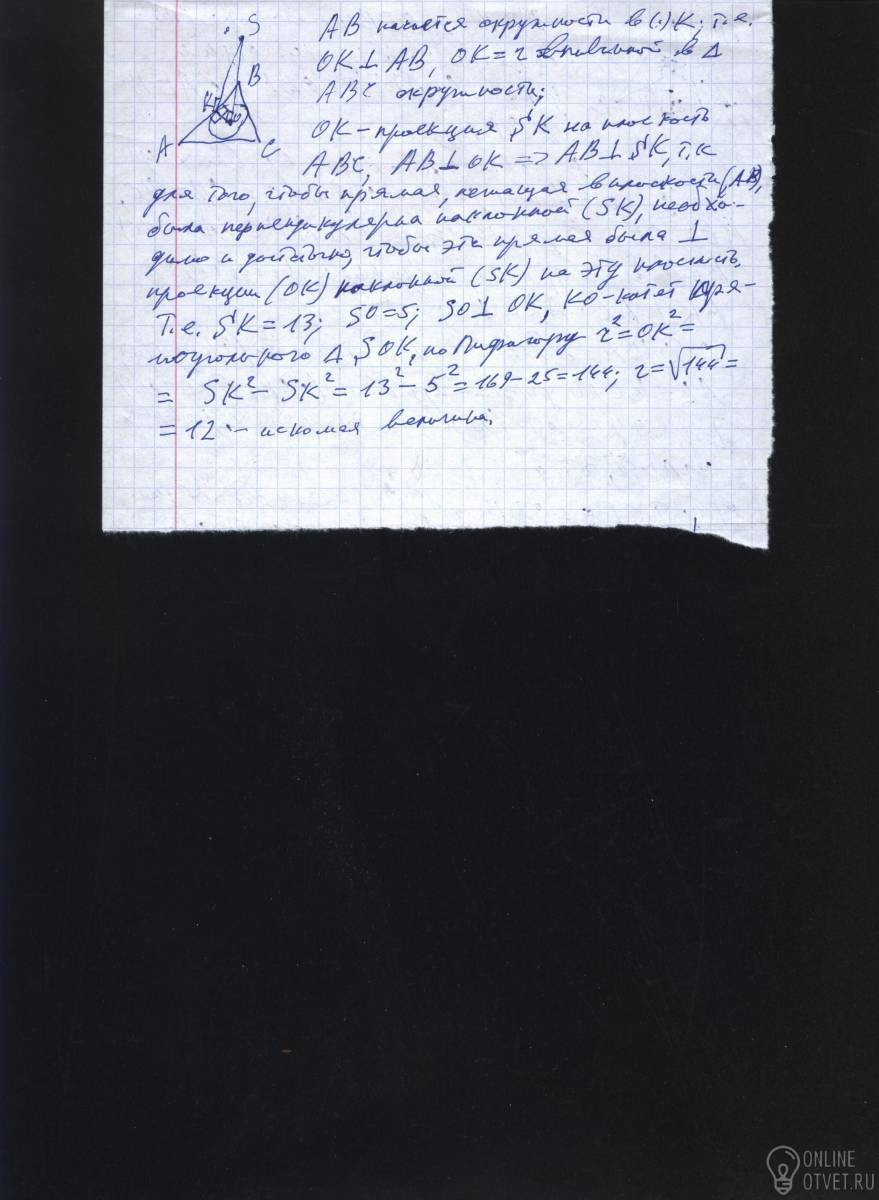 S
B
K
O
A
C
АВ касается окружности в (.) К, т.е.
OK⊥AB, OK=r вписанной в Δ
АВС окружности;
ОК-проекция SK на плоскость
АВС, AB⊥OK => AB⊥SK, т.к
для того, чтобы прямая, лежащая в плоскости (АВ),
была перпендикулярна наклонной (SK), необхо-
димо и достаточно, чтобы эта прямая была ⊥
проекции (ОК) наклонной (SK) на эту плоскость.
Т.е. SK=13; SO=5; SO⊥OK, КО-катет пря-
моугольного Δ SOK, по Пифагору r²=OK²=
= SK²-SK²=13²-5²=169-25=144; r=√144=
=12 - искомая величина.
ONLINE
OTVET.RU